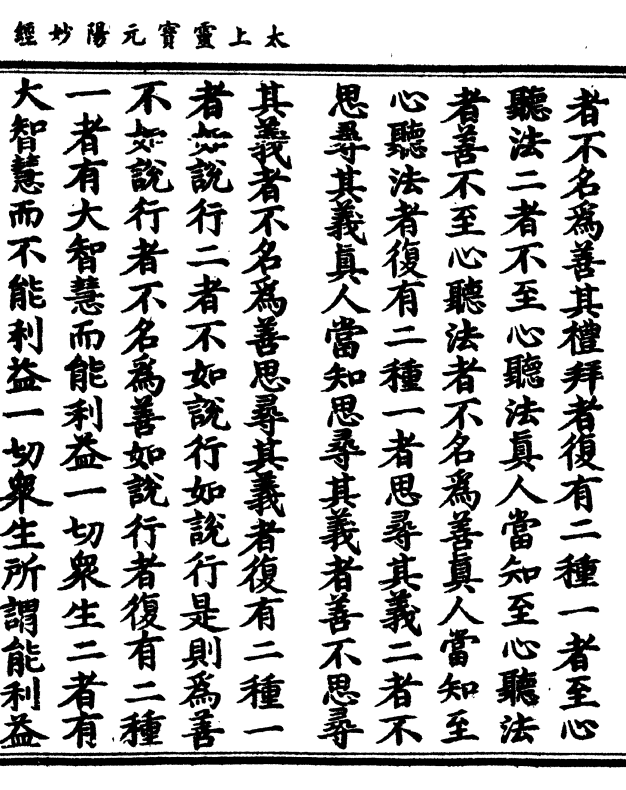 太上靈寶元陽妙經
者不名爲善其禮拜者復有二種一者至心
聽法二者不至心聽法真人當知至心聽法
者善不至心聽法者不名爲善真人當知至
心聽法者復有二種一者思尋其義二者不
思尋其義真人當知思尋其義者善不思尋
其義者不名爲善思尋其義者復有二種一
者如說行二者不如說行如說行是則爲善
不如說行者不名爲善如說行者復有二種
一者有大智慧而能利益一切衆生二者有
大智慧而不能利益一切衆生所謂能利益